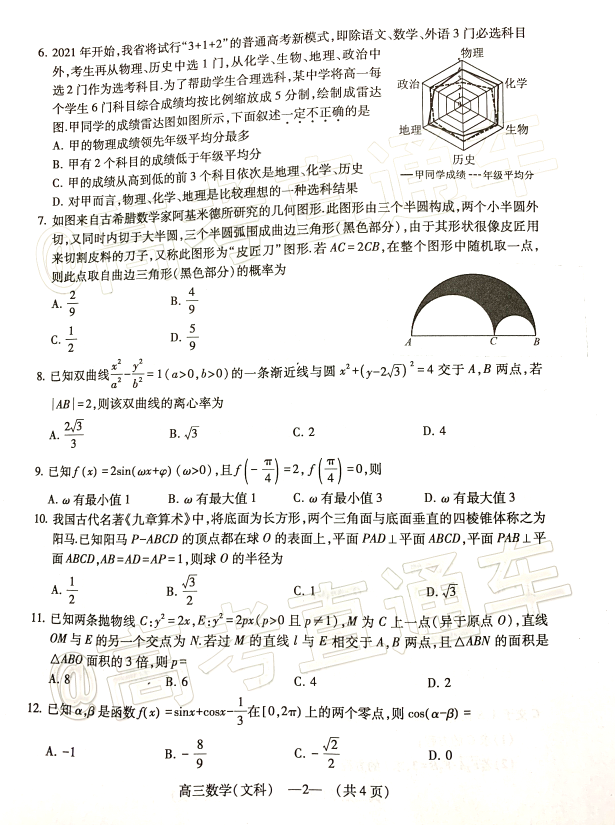 6. 2021年开始,我省将试行“3+1+2”的普通高考新模式,即除语文、数学、外语3门必选科目
外,考生再从物理、历史中选1门,从化学、生物、地理、政治中
选2门作为选考科目.为了帮助学生合理选科,某中学将高一每
个学生6门科目综合成绩均按比例缩放成5分制,绘制成雷达
图.甲同学的成绩雷达图如图所示,下面叙述一定不正确的是
A. 甲的物理成绩领先年级平均分最多
B. 甲有2个科目的成绩低于年级平均分
C. 甲的成绩从高到低的前3个科目依次是地理、化学、历史
D. 对甲而言,物理、化学、地理是比较理想的一种选科结果
物理
政治
化学
地理
生物
历史
——甲同学成绩 ---年级平均分
7. 如图来自古希腊数学家阿基米德所研究的几何图形.此图形由三个半圆构成,两个小半圆外
切,又同时内切于大半圆,三个半圆弧围成曲边三角形(黑色部分),由于其形状很像皮匠用
来切割皮料的刀子,又称此图形为“皮匠刀”图形.若 AC=2CB,在整个图形中随机取一点,
则此点取自曲边三角形(黑色部分)的概率为
A. 2/9
B. 4/9
C. 1/2
D. 5/9
A C B
8. 已知双曲线x²/a²-y²/b²=1(a>0,b>0)的一条渐近线与圆 x²+(y-2√3)²=4 交于 A,B 两点,若
|AB|=2,则该双曲线的离心率为
A. 2√3/3 B. √3 C. 2 D. 4
9. 已知f(x)=2sin(ωx+φ)(ω>0),且f(-π/4)=2,f(π/4)=0,则
A. ω有最小值1 B. ω有最大值1 C. ω有最小值3 D. ω有最大值3
10. 我国古代名著《九章算术》中,将底面为长方形,两个三角面与底面垂直的四棱锥体称之为
阳马.已知阳马 P-ABCD 的顶点都在球 O 的表面上,平面 PAD⊥平面 ABCD,平面 PAB⊥平
面 ABCD,AB=AD=AP=1,则球 O 的半径为
A. 1/2 B. √3/2 C. 1 D. √3
11. 已知两条抛物线 C:y²=2x,E:y²=2px(p>0且p≠1),M 为 C 上一点(异于原点 O),直线
OM 与 E 的另一个交点为 N.若过 M 的直线 l 与 E 相交于 A,B 两点,且△ABN 的面积是
△ABO 面积的3倍,则p=
A. 8 B. 6 C. 4 D. 2
12. 已知α,β是函数f(x)=sinx+cosx-1/3在[0,2π)上的两个零点,则 cos(α-β)=
A. -1 B. -8/9 C. -√2/2 D. 0
高三数学(文科) —2— (共4页)
@高考直通车
@高考直通车